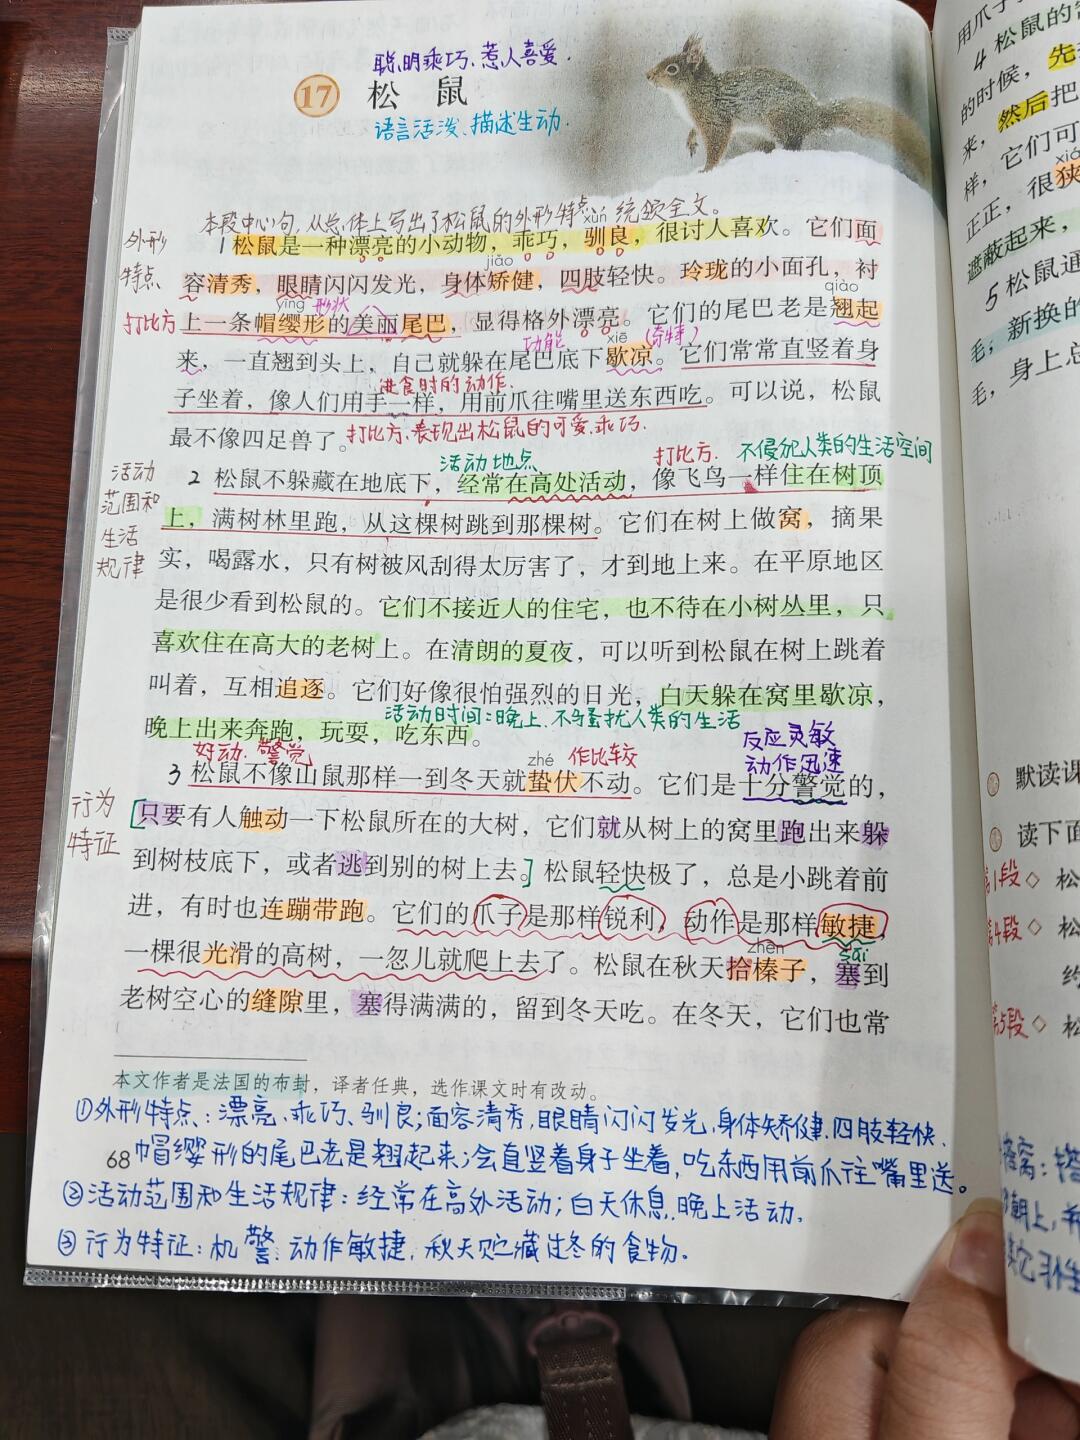 聪明乖巧、惹人喜爱.
17 松鼠
语言活泼、描述生动.
本段中心句,从总体上写出了松鼠的外形特点,统领全文。
外形
特点
xùn
1松鼠是一种漂亮的小动物，乖巧，驯良，很讨人喜欢。它们面
jiǎo
容清秀，眼睛闪闪发光，身体矫健，四肢轻快。玲珑的小面孔，衬
yīng 形状
qiào
打比方
上一条帽缨形的美丽尾巴，显得格外漂亮。它们的尾巴老是翘起
功能
xiē
(奇特)
来，一直翘到头上，自己就躲在尾巴底下歇凉。它们常常直竖着身
进食时的动作.
子坐着，像人们用手一样，用前爪往嘴里送东西吃。可以说，松鼠
最不像四足兽了。
打比方、表现出松鼠的可爱、乖巧.
活动地点
打比方.
不侵犯人类的生活空间
活动
范围和
生活
规律
2 松鼠不躲藏在地底下，经常在高处活动，像飞鸟一样住在树顶
上，满树林里跑，从这棵树跳到那棵树。它们在树上做窝，摘果
实，喝露水，只有树被风刮得太厉害了，才到地上来。在平原地区
是很少看到松鼠的。它们不接近人的住宅，也不待在小树丛里，只
喜欢住在高大的老树上。在清朗的夏夜，可以听到松鼠在树上跳着
叫着，互相追逐。它们好像很怕强烈的日光，白天躲在窝里歇凉，
晚上出来奔跑，玩耍，吃东西。
活动时间:晚上、不骚扰人类的生活
好动、警觉
zhé
作比较
反应灵敏
动作迅速
行为
特征
3 松鼠不像山鼠那样一到冬天就蛰伏不动。它们是十分警觉的，
[只要有人触动一下松鼠所在的大树，它们就从树上的窝里跑出来躲
到树枝底下，或者逃到别的树上去。]松鼠轻快极了，总是小跳着前
进，有时也连蹦带跑。它们的爪子是那样锐利，动作是那样敏捷，
zhēn
sāi
一棵很光滑的高树，一忽儿就爬上去了。松鼠在秋天拾榛子，塞到
老树空心的缝隙里，塞得满满的，留到冬天吃。在冬天，它们也常
本文作者是法国的布封，译者任典，选作课文时有改动。
①外形特点:漂亮、乖巧、驯良;面容清秀,眼睛闪闪发光,身体矫健,四肢轻快.
68
帽缨形的尾巴老是翘起来;会直竖着身子坐着,吃东西用前爪往嘴里送。
②活动范围和生活规律:经常在高处活动;白天休息,晚上活动.
③行为特征:机警、动作敏捷,秋天贮藏过冬的食物.
用爪子
4 松鼠的窝
的时候，先
来，然后把
样，它们可
xiá
正正，很狭
遮蔽起来，
5 松鼠通
新换的
毛，身上总
默读课
读下面
第1段 ◇ 松
第4段 ◇ 松
约
第5段 ◇ 松
搭窝:搭
朝上,并
其它习性